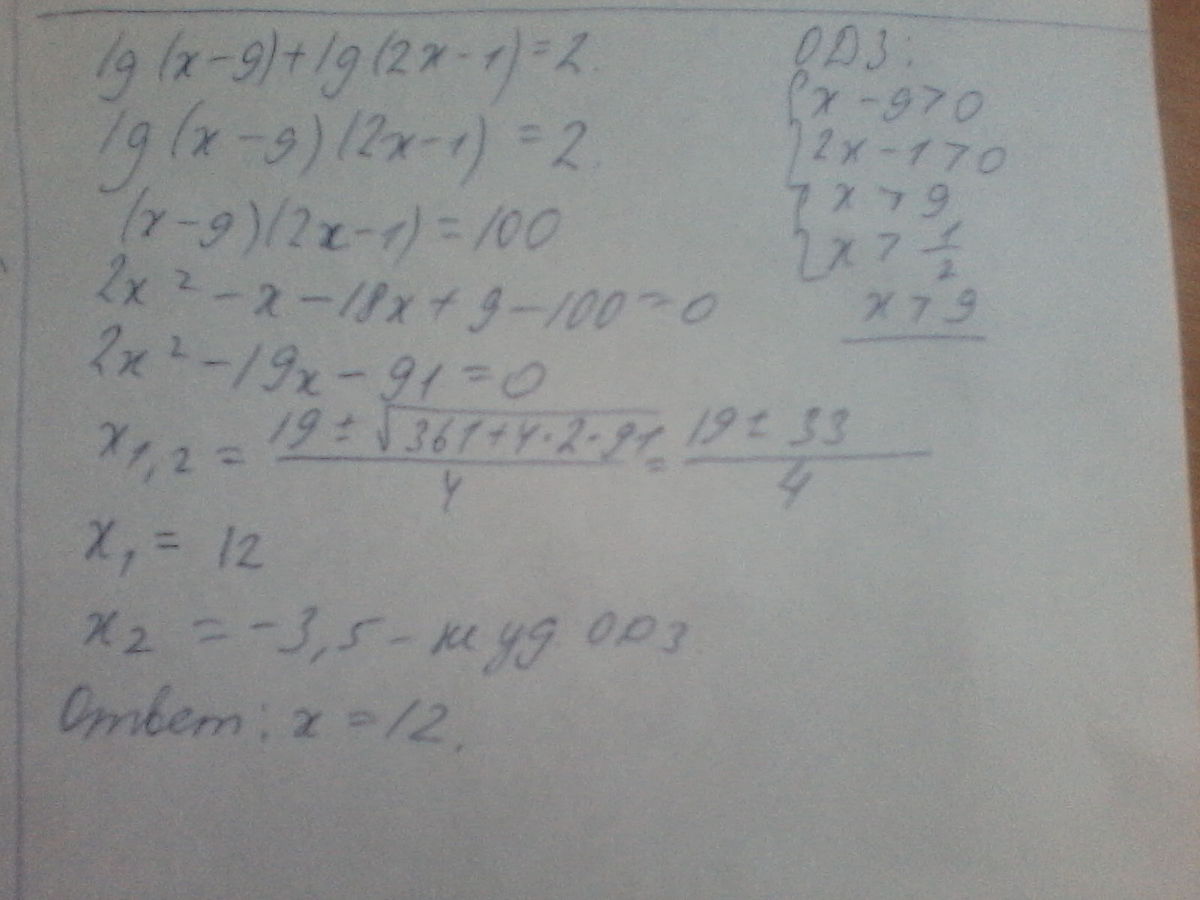 lg(x-9)+lg(2x-1)=2.
lg(x-9)(2x-1)=2.
(x-9)(2x-1)=100
2x²-x-18x+9-100=0
2x²-19x-91=0
x₁,₂ = (19±√(361+4·2·91))/4 = (19±33)/4
x₁ = 12
x₂ = -3,5 - уд ОДЗ
Ответ: x=12.
ОДЗ:
{x-9>0
{2x-1>0
{x>9
{x>1/2
x>9